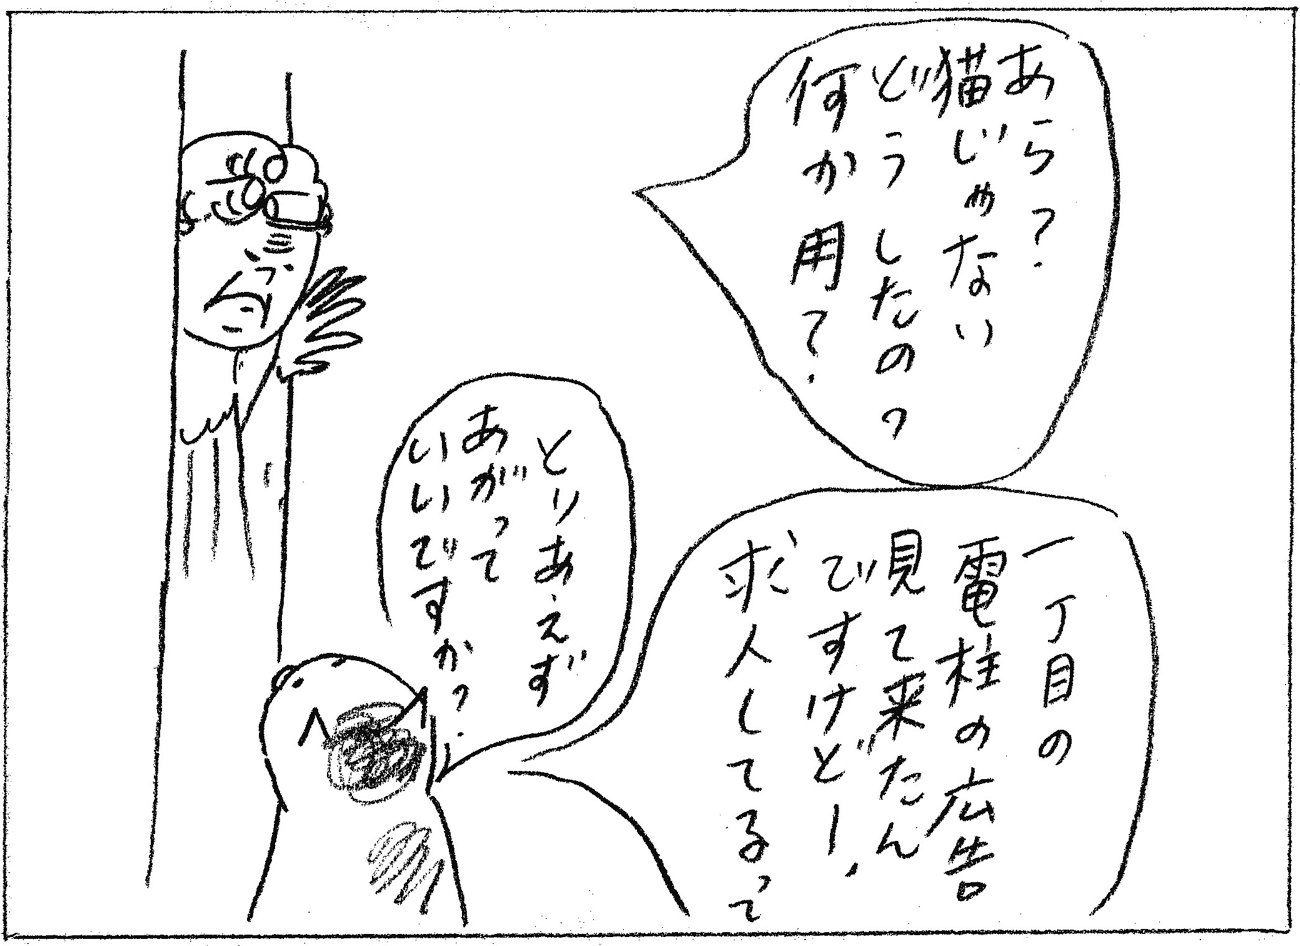 あら?
猫じゃない
どうしたの?
何か用?
一丁目の
電柱の広告
見て来たん
ですけどー、
求人してるって
とりあえず
あがって
いいですか?